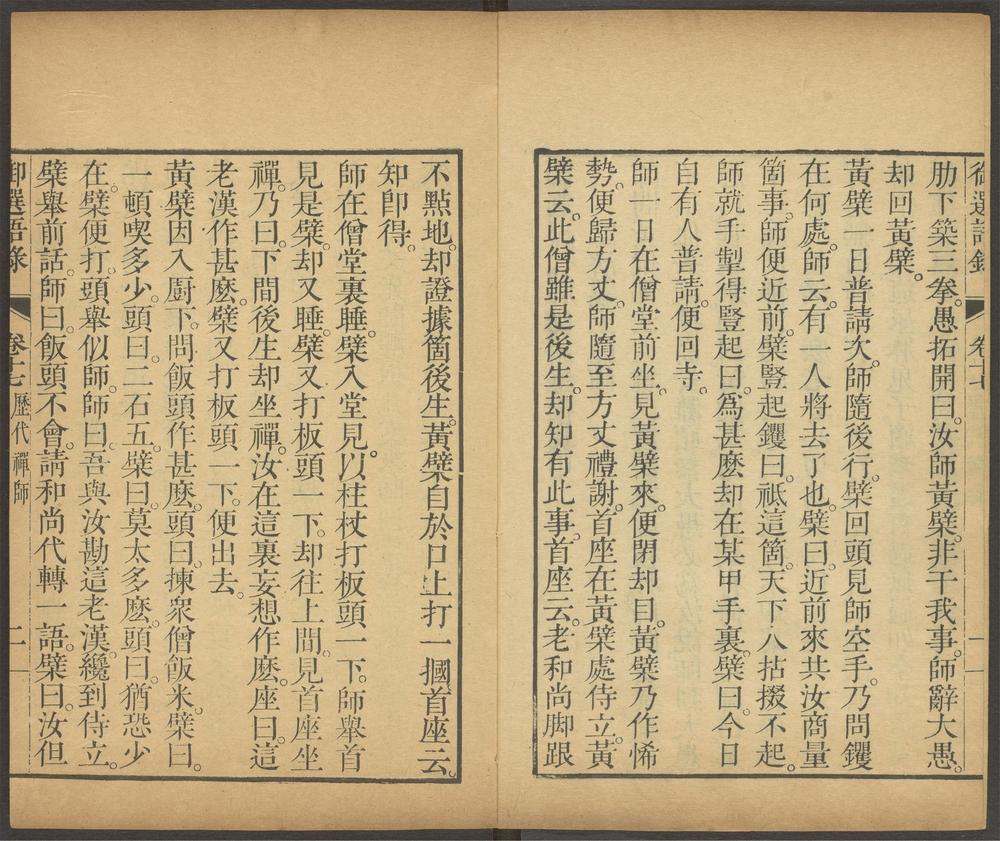 御選語錄 卷十七 二
肋下築三拳。愚拓開曰。汝師黃檗。非干我事。師辭大愚。
却回黃檗。
黃檗一日普請次。師隨後行。檗回頭見師空手。乃問钁
在何處。師云。有一人將去了也。檗曰。近前來共汝商量
箇事。師便近前。檗豎起钁曰。祗這箇。天下人拈掇不起。
師就手掣得豎起曰。爲甚麽却在某甲手裏。檗曰。今日
自有人普請。便回寺。
師一日在僧堂前坐。見黃檗來。便閉却目。黃檗乃作悕
勢。便歸方丈。師隨至方丈禮謝。首座在黃檗處侍立。黃
檗云。此僧雖是後生。却知有此事。首座云。老和尚脚跟
不點地。却證據箇後生。黃檗自於口上打一摑。首座云。
知卽得。
師在僧堂裏睡。檗入堂見。以柱杖打板頭一下。師舉首
見是檗。却又睡。檗又打板頭一下。却往上間。見首座坐
禪。乃曰。下間後生却坐禪。汝在這裏妄想作麽。座曰。這
老漢作甚麽。檗又打板頭一下。便出去。
黃檗因入廚下。問飯頭作甚麽。頭曰。揀衆僧飯米。檗曰。
一頓喫多少。頭曰。二石五。檗曰。莫太多麽。頭曰。猶恐少
在。檗便打。頭舉似師。師曰。吾與汝勘這老漢。纔到侍立。
檗舉前話。師曰。飯頭不會。請和尚代轉一語。檗曰。汝但
御選語錄 卷十七 歷代禪師 二